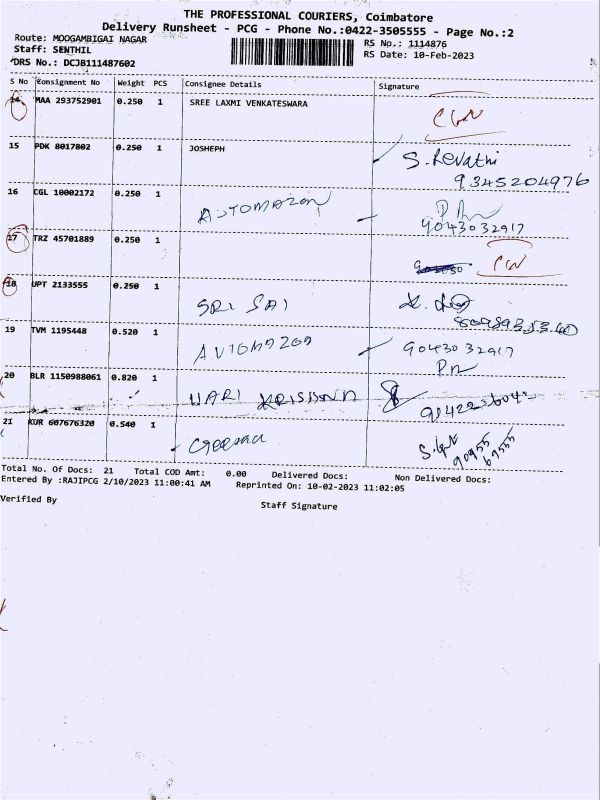 THE PROFESSIONAL COURIERS, Coimbatore
Delivery Runsheet - PCG - Phone No.:0422-3505555 - Page No.:2
Route: MOOGAMBIGAI NAGAR
Staff: SENTHIL
DRS No.: DCJB111487602
RS No.: 1114876
RS Date: 10-Feb-2023
S No Consignment No Weight PCS Consignee Details Signature
14 MAA 293752901 0.250 1 SREE LAXMI VENKATESWARA
15 PDK 8017802 0.250 1 JOSHEPH S. Revathi
9345204976
16 CGL 10002172 0.250 1 AUTOMAZON
9043032917
17 TRZ 45701889 0.250 1
18 UPT 2133555 0.250 1 SRI SAI
19 TVM 1195448 0.520 1 AUTOMAZON 9043032917
20 BLR 1150988061 0.820 1 HARI KRISHNA
21 KUR 607676320 0.540 1
Total No. Of Docs: 21 Total COD Amt: 0.00 Delivered Docs: Non Delivered Docs:
Entered By :RAJIPCG 2/10/2023 11:00:41 AM Reprinted On: 10-02-2023 11:02:05
Verified By
Staff Signature